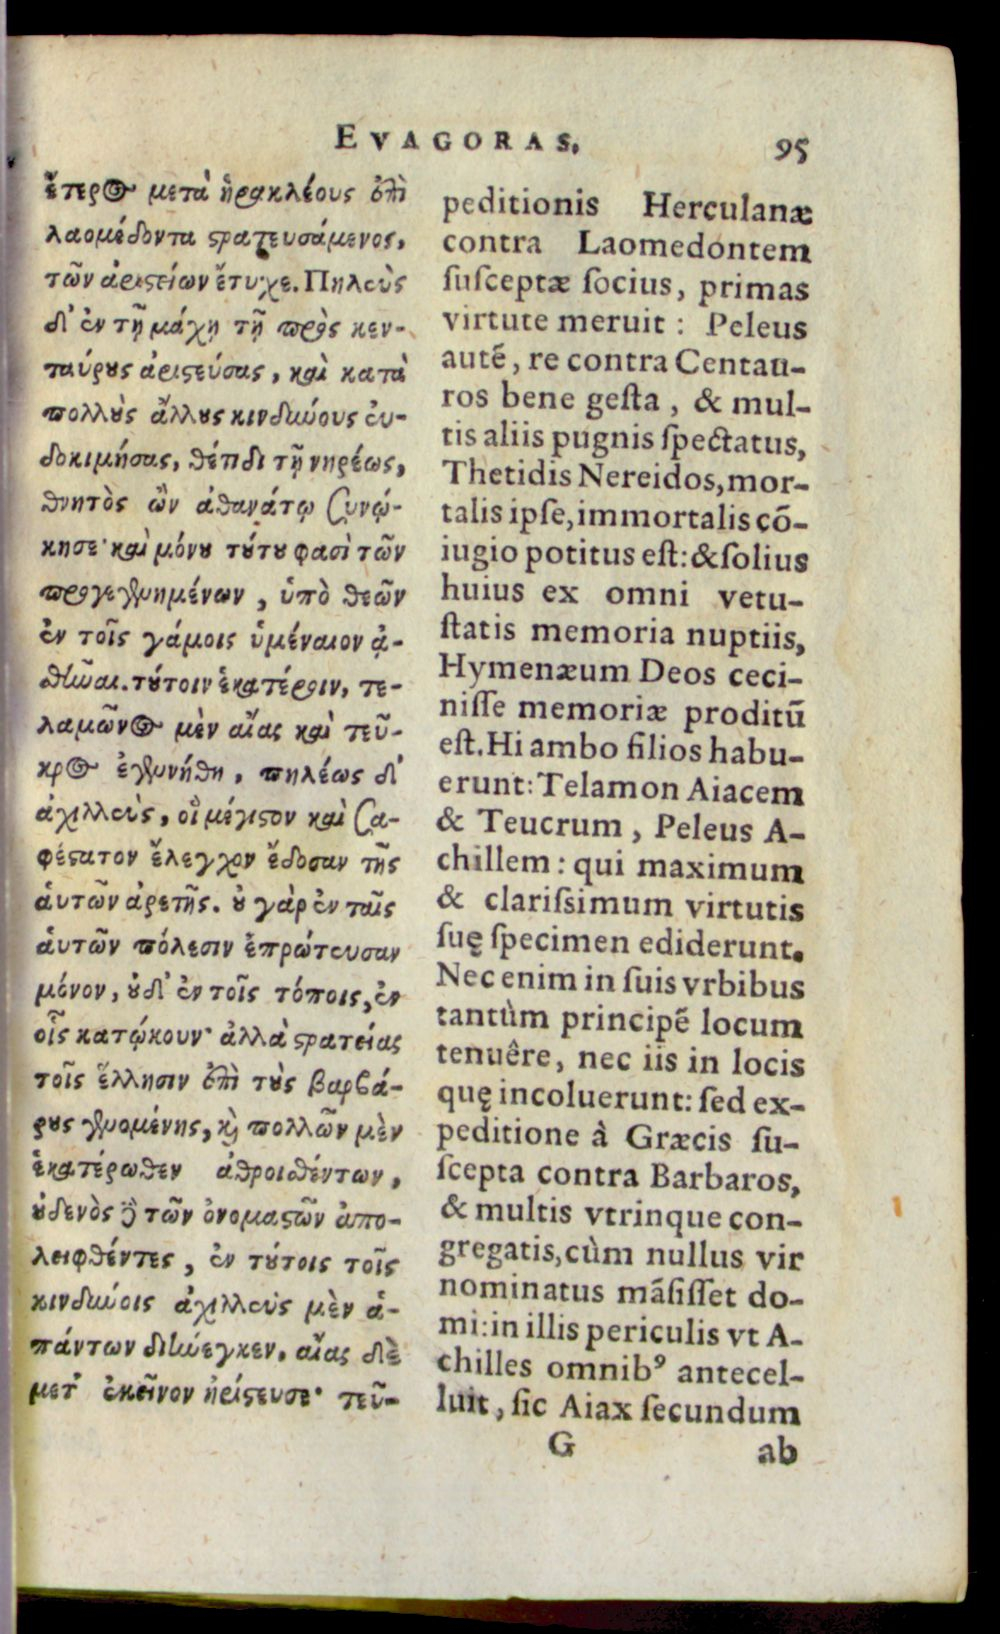 EVAGORAS.
95
ἕτερος μετὰ ἡρακλέους ἐπὶ
λαομέδοντα στρατευσάμενος,
τῶν ἀριστείων ἔτυχε. Πηλεὺς
δ' ἐν τῇ μάχῃ τῇ πρὸς κεν-
ταύρους ἀριστεύσας, καὶ κατὰ
πολλοὺς ἄλλους κινδύνους εὐ-
δοκιμήσας, θέτιδι τῇ νηρέως,
θνητὸς ὢν ἀθανάτῳ συνῴ-
κησε· καὶ μόνου τούτου φασὶ τῶν
προγεγενημένων, ὑπὸ θεῶν
ἐν τοῖς γάμοις ὑμέναιον ᾀ-
θῆναι. τούτοιν ἑκατέροιν, τε-
λαμῶνος μὲν αἴας καὶ τεῦ-
κρος ἐγενήθη, πηλέως δ'
ἀχιλλεὺς, οἳ μέγιστον καὶ σα-
φέστατον ἔλεγχον ἔδοσαν τῆς
αὑτῶν ἀρετῆς. οὐ γὰρ ἐν ταῖς
αὑτῶν πόλεσιν ἐπρώτευσαν
μόνον, οὐδ' ἐν τοῖς τόποις, ἐν
οἷς κατῴκουν· ἀλλὰ στρατείας
τοῖς ἕλλησιν ἐπὶ τοὺς βαρβά-
ρους γενομένης, καὶ πολλῶν μὲν
ἑκατέρωθεν ἀθροισθέντων,
οὐδενὸς δὲ τῶν ὀνομαστῶν ἀπο-
λειφθέντες, ἐν τούτοις τοῖς
κινδύνοις ἀχιλλεὺς μὲν ἁ-
πάντων διήνεγκεν, αἴας δὲ
μετ' ἐκεῖνον ἠρίστευσε· τεῦ-
peditionis Herculanæ
contra Laomedontem
ſuſceptæ ſocius, primas
virtute meruit: Peleus
autẽ, re contra Centau-
ros bene geſta, & mul-
tis aliis pugnis ſpectatus,
Thetidis Nereidos, mor-
talis ipſe, immortalis cõ-
iugio potitus eſt: & ſolius
huius ex omni vetu-
ſtatis memoria nuptiis,
Hymenæum Deos ceci-
niſſe memoriæ proditũ
eſt. Hi ambo filios habu-
erunt: Telamon Aiacem
& Teucrum, Peleus A-
chillem: qui maximum
& clariſsimum virtutis
ſuę ſpecimen ediderunt.
Nec enim in ſuis vrbibus
tantùm principẽ locum
tenuêre, nec iis in locis
quę incoluerunt: ſed ex-
peditione à Græcis ſu-
ſcepta contra Barbaros,
& multis vtrinque con-
gregatis, cùm nullus vir
nominatus mãſiſſet do-
mi: in illis periculis vt A-
chilles omnibꝰ antecel-
luit, ſic Aiax ſecundum
G
ab